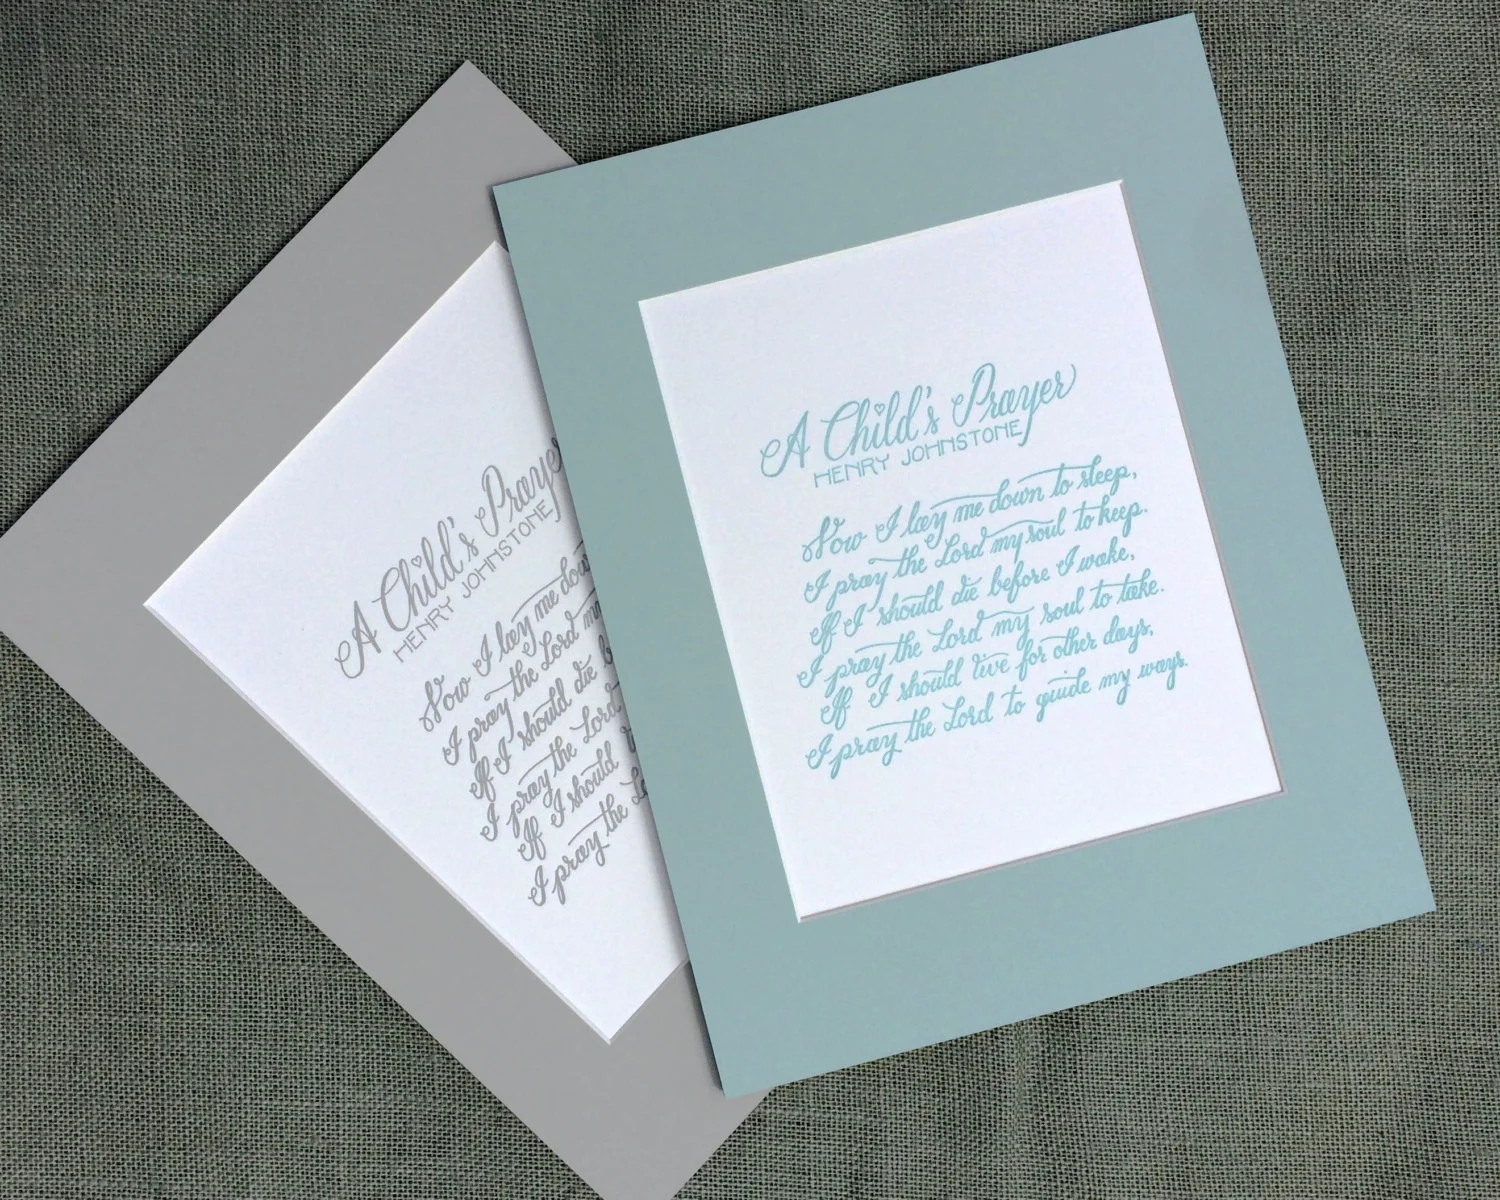 A Child's Prayer
HENRY JOHNSTONE
Now I lay me down
I pray the Lord my
If I should die b
I pray the Lord
If I should
I pray the Lo
A Child's Prayer
HENRY JOHNSTONE
Now I lay me down to sleep,
I pray the Lord my soul to keep.
If I should die before I wake,
I pray the Lord my soul to take.
If I should live for other days,
I pray the Lord to guide my ways.